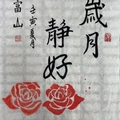 歲月
静好
壬寅夏月
富山